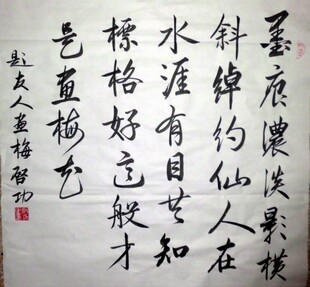 墨痕濃淡影横
斜绰约仙人在
水涯有目共知
標格好這般才
是畫梅花
題友人畫梅啓功